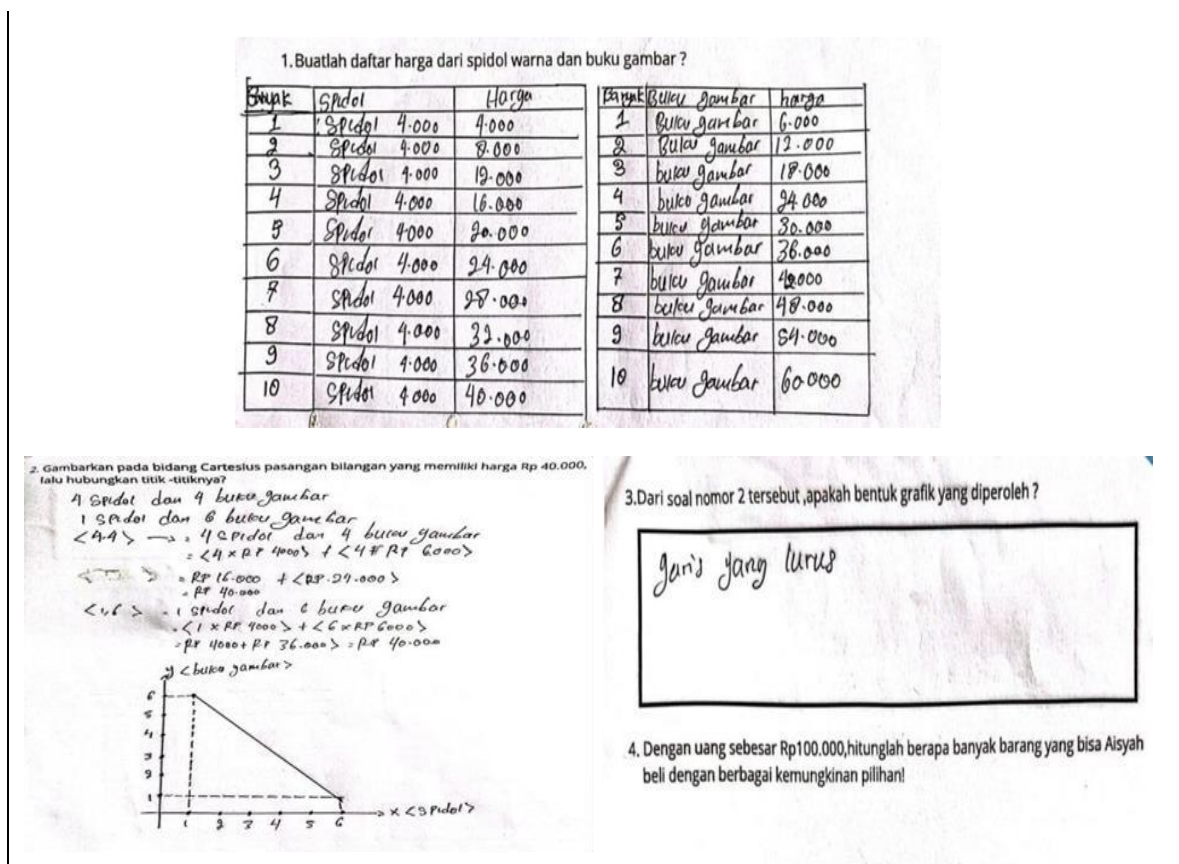 1.Buatlah daftar harga dari spidol warna dan buku gambar ?
Banyak Spidol Harga
1 Spidol 4.000 4.000
2 Spidol 4.000 8.000
3 Spidol 4.000 12.000
4 Spidol 4.000 16.000
5 Spidol 4000 20.000
6 Spidol 4.000 24.000
7 Spidol 4.000 28.000
8 Spidol 4.000 32.000
9 Spidol 4.000 36.000
10 Spidol 4000 40.000
Banyak Buku gambar harga
1 Buku gambar 6.000
2 Buku gambar 12.000
3 buku gambar 18.000
4 buku gambar 24.000
5 buku gambar 30.000
6 buku gambar 36.000
7 buku gambar 42000
8 buku gambar 48.000
9 buku gambar 54.000
10 buku gambar 60000
2. Gambarkan pada bidang Cartesius pasangan bilangan yang memiliki harga Rp 40.000,
lalu hubungkan titik -titiknya?
4 Spidol dan 4 buku gambar
1 Spidol dan 6 buku gambar
<4.4> → = 4 Spidol dan 4 buku gambar
= <4 x RP 4000> + <4 # RP 6000>
= RP 16.000 + <RP.24.000>
= RP 40.000
<1,6> = 1 spidol dan 6 buku gambar
= <1 x RP 4000> + <6 x RP 6000>
= RP 4000 + RP 36.000> = RP 40.000
y <buku gambar>
6
5
4
3
2
1
x <Spidol>
1 2 3 4 5 6
3.Dari soal nomor 2 tersebut ,apakah bentuk grafik yang diperoleh ?
garis yang lurus
4. Dengan uang sebesar Rp100.000,hitunglah berapa banyak barang yang bisa Aisyah
beli dengan berbagai kemungkinan pilihan!